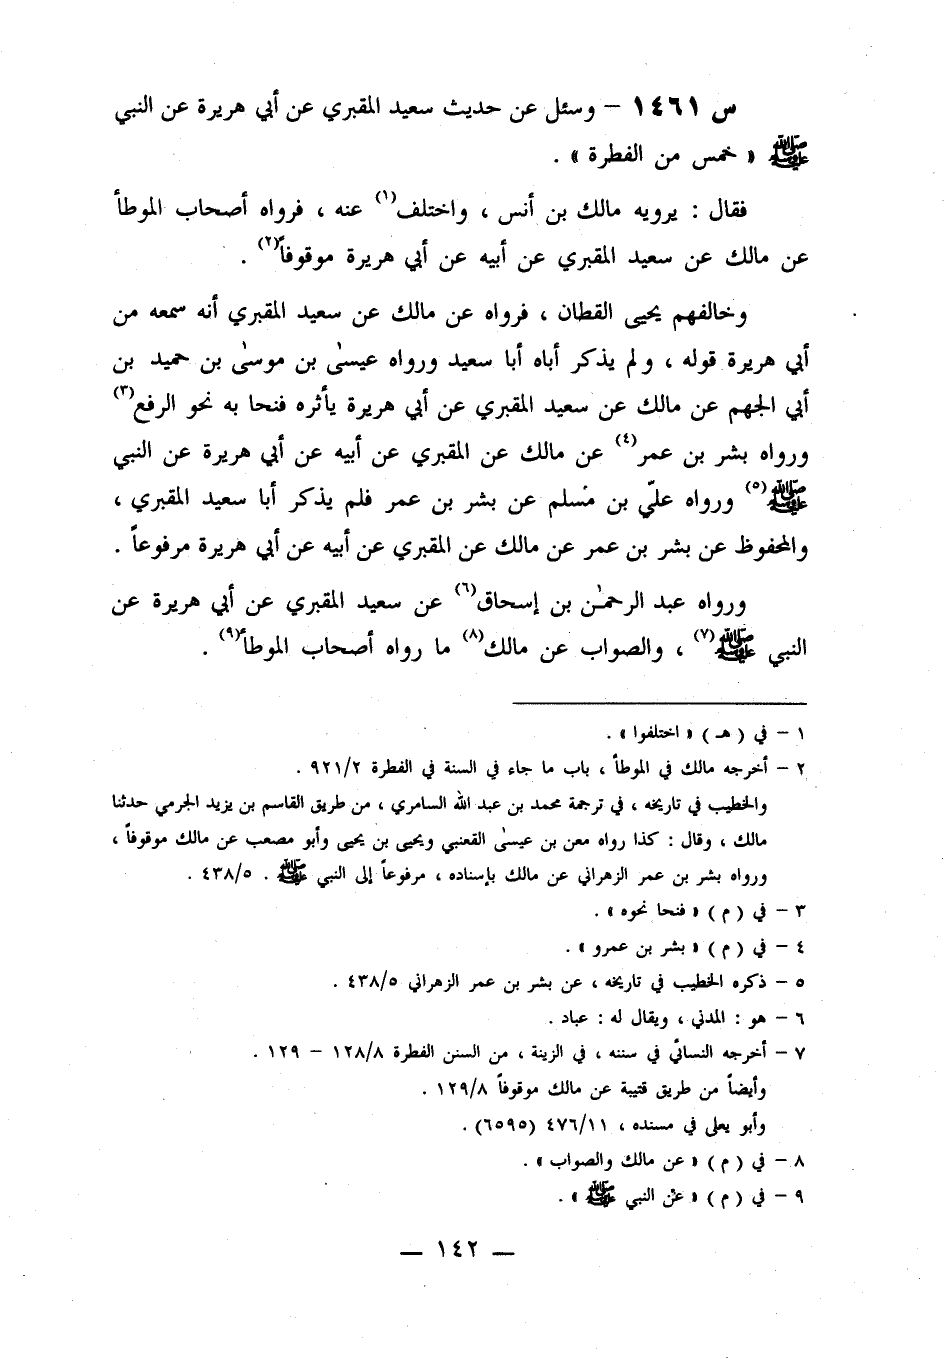 س ١٤٦١ – وسئل عن حديث سعيد المقبري عن أبي هريرة عن النبي
ﷺ « خمس من الفطرة » .
فقال : يرويه مالك بن أنس ، واختلف(١) عنه ، فرواه أصحاب الموطأ
عن مالك عن سعيد المقبري عن أبيه عن أبي هريرة موقوفاً(٢) .
وخالفهم يحيى القطان ، فرواه عن مالك عن سعيد المقبري أنه سمعه من
أبي هريرة قوله ، ولم يذكر أباه أبا سعيد ورواه عيسىٰ بن موسىٰ بن حميد بن
أبي الجهم عن مالك عن سعيد المقبري عن أبي هريرة يأثره فنحا به نحو الرفع(٣)
ورواه بشر بن عمر(٤) عن مالك عن المقبري عن أبيه عن أبي هريرة عن النبي
ﷺ(٥) ورواه عليّ بن مسلم عن بشر بن عمر فلم يذكر أبا سعيد المقبري ،
والمحفوظ عن بشر بن عمر عن مالك عن المقبري عن أبيه عن أبي هريرة مرفوعاً .
ورواه عبد الرحمـٰن بن إسحاق(٦) عن سعيد المقبري عن أبي هريرة عن
النبي ﷺ(٧) ، والصواب عن مالك(٨) ما رواه أصحاب الموطأ(٩) .
١ – في ( هـ ) « اختلفوا » .
٢ – أخرجه مالك في الموطأ ، باب ما جاء في السنة في الفطرة ٩٢١/٢ .
والخطيب في تاريخه ، في ترجمة محمد بن عبد الله السامري ، من طريق القاسم بن يزيد الجرمي حدثنا
مالك ، وقال : كذا رواه معن بن عيسىٰ القعنبي ويحيى بن يحيى وأبو مصعب عن مالك موقوفاً ،
ورواه بشر بن عمر الزهراني عن مالك بإسناده ، مرفوعاً إلى النبي ﷺ . ٤٣٨/٥ .
٣ – في ( م ) « فنحا نحوه » .
٤ – في ( م ) « بشر بن عمرو » .
٥ – ذكره الخطيب في تاريخه ، عن بشر بن عمر الزهراني ٤٣٨/٥ .
٦ – هو : المدني ، ويقال له : عباد .
٧ – أخرجه النسائي في سننه ، في الزينة ، من السنن الفطرة ١٢٨/٨ – ١٢٩ .
وأيضاً من طريق قتيبة عن مالك موقوفاً ١٢٩/٨ .
وأبو يعلى في مسنده ، ٤٧٦/١١ (٦٥٩٥) .
٨ – في ( م ) « عن مالك والصواب » .
٩ – في ( م ) « عن النبي ﷺ » .
— ١٤٢ —